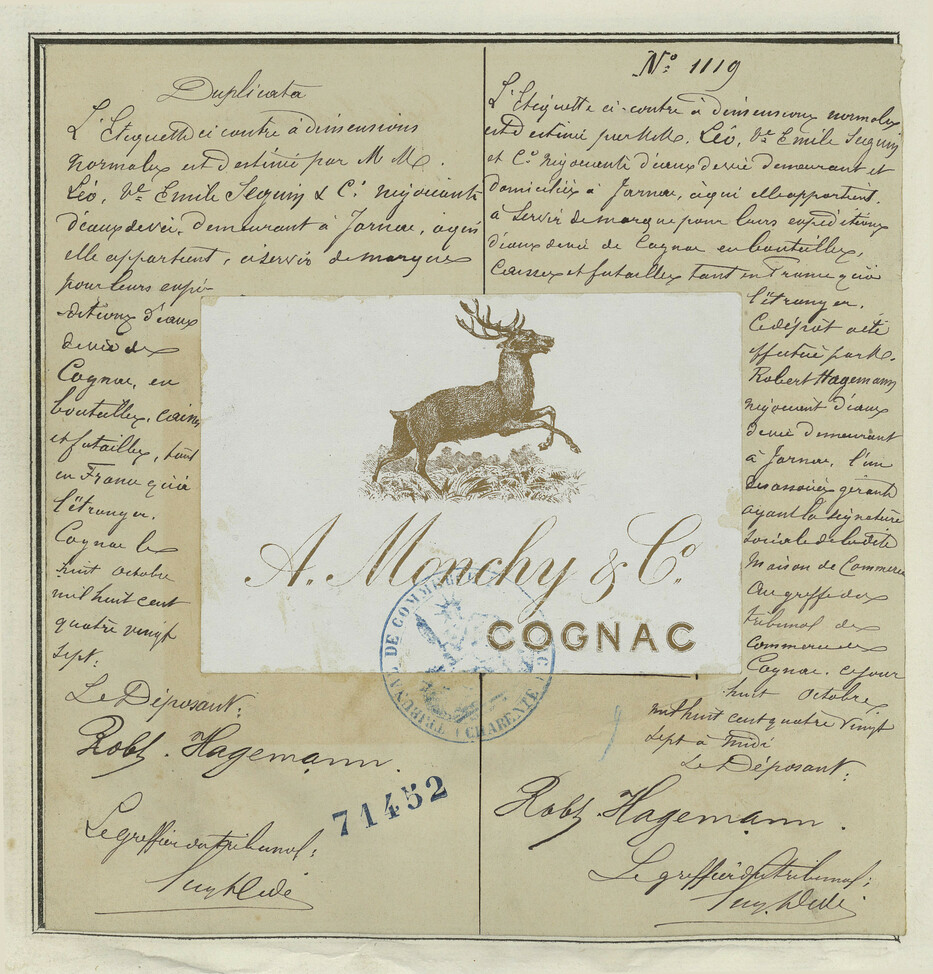 Duplicata
L'Etiquette ci contre à dimensions
normales est destiné par M M.
Léo, Ve Emile Seguin & Cie négociants
d'eaux de vie, demeurant à Jarnac, à qui
elle appartient, à servir de marque
pour leurs expé-
ditions d'eaux
de vie de
Cognac, en
bouteilles, caisses
et futailles, tant
en France qu'à
l'étranger.
Cognac le
huit octobre
mil huit cent
quatre vingt
sept:
Le Déposant:
Robt. Hagemann.
Le greffier du tribunal:
No 1119
L'Etiquette ci-contre à dimensions normales
est destiné par M M. Léo, Ve Emile Seguin
et Co négociants d'eaux de vie demeurant et
domiciliés à Jarnac, à qui elle appartient,
à servir de marque pour leurs expéditions
d'eaux de vie de Cognac en bouteilles,
caisses et futailles tant en France qu'à
l'étranger.
Ce dépôt a été
effectué par M.
Robert Hagemann
négociant d'eaux
de vie demeurant
à Jarnac, l'un
des associés gérants
ayant la signature
sociale de la dite
Maison de Commerce
Au greffe du
tribunal de
commerce de
Cognac, ce jour
huit octobre
mil huit cent quatre vingt
sept à midi
Le Déposant:
Robt. Hagemann.
Le greffier du tribunal:
A. Monchy & Co.
COGNAC
TRIBUNAL DE COMMERCE
(CHARENTE)
71452